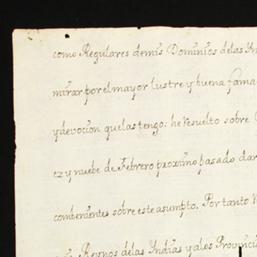 como Regulares de mis Dominios de las In
mirar por el mayor lustre y buena fama
y devocion que las tengo: he resuelto sobre
ez y nuebe de Febrero proximo pasado dar
combenientes sobre este asumpto. Por tanto
Reynos de las Indias y a los Provincia